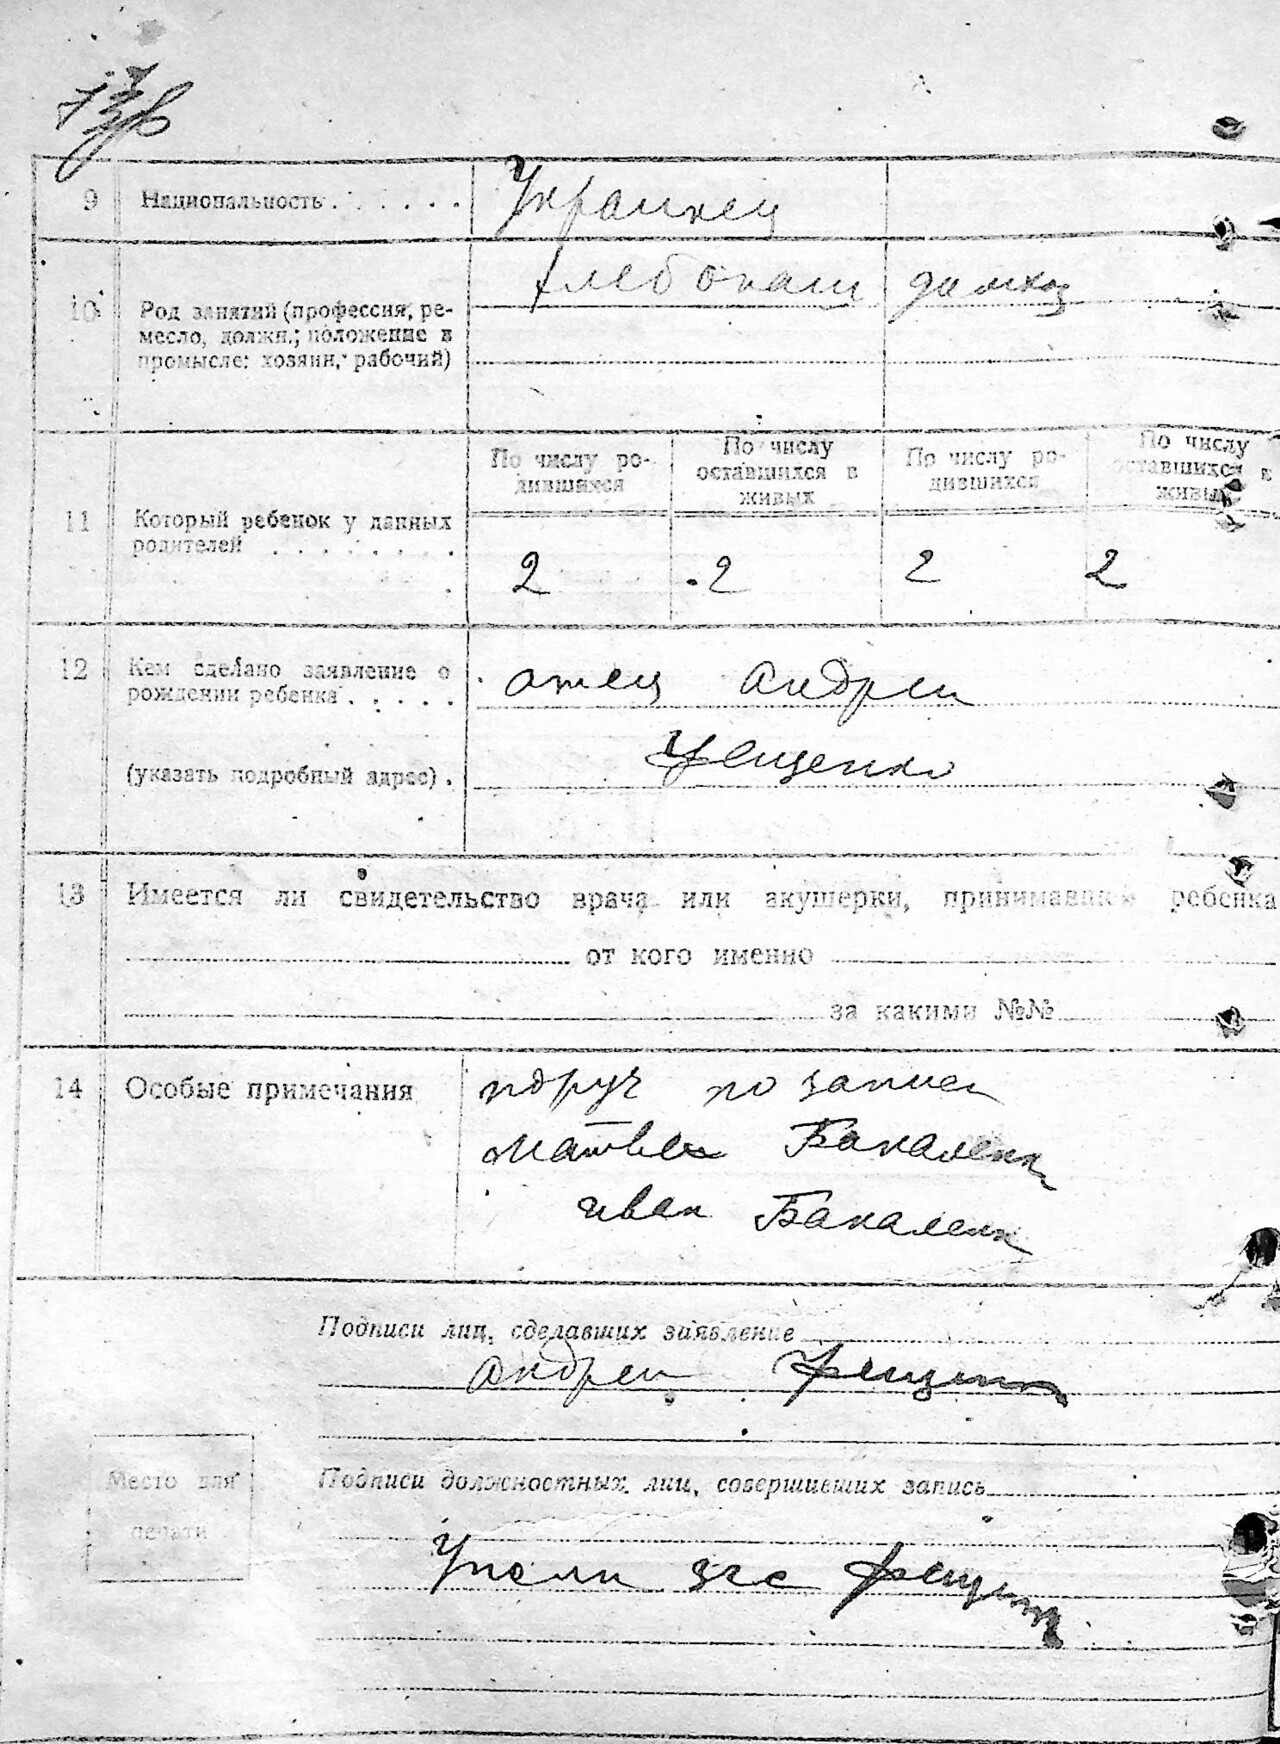 9 Национальность . . . . . . Украинец
хлебопаш домхоз
10 Род занятий (профессия, ре-
месло, должн.; положение в
промысле: хозяин, рабочий)
По числу ро-
дившихся
По числу
оставшихся в
живых
По числу ро-
дившихся
По числу
оставшихся в
живых
11 Который ребенок у данных
родителей . . . . . . . .
2 2 2 2
12 Кем сделано заявление о
рождении ребенка . . . . .
отец Андрей
(указать подробный адрес) .
13 Имеется ли свидетельство врача или акушерки, принимавшей ребенка
от кого именно
за какими №№
14 Особые примечания
по записи
Матвей Бакаленк
иван Бакаленк
Подписи лиц, сделавших заявление
Андрей
Место для
печати
Подписи должностных лиц, совершивших запись
загс